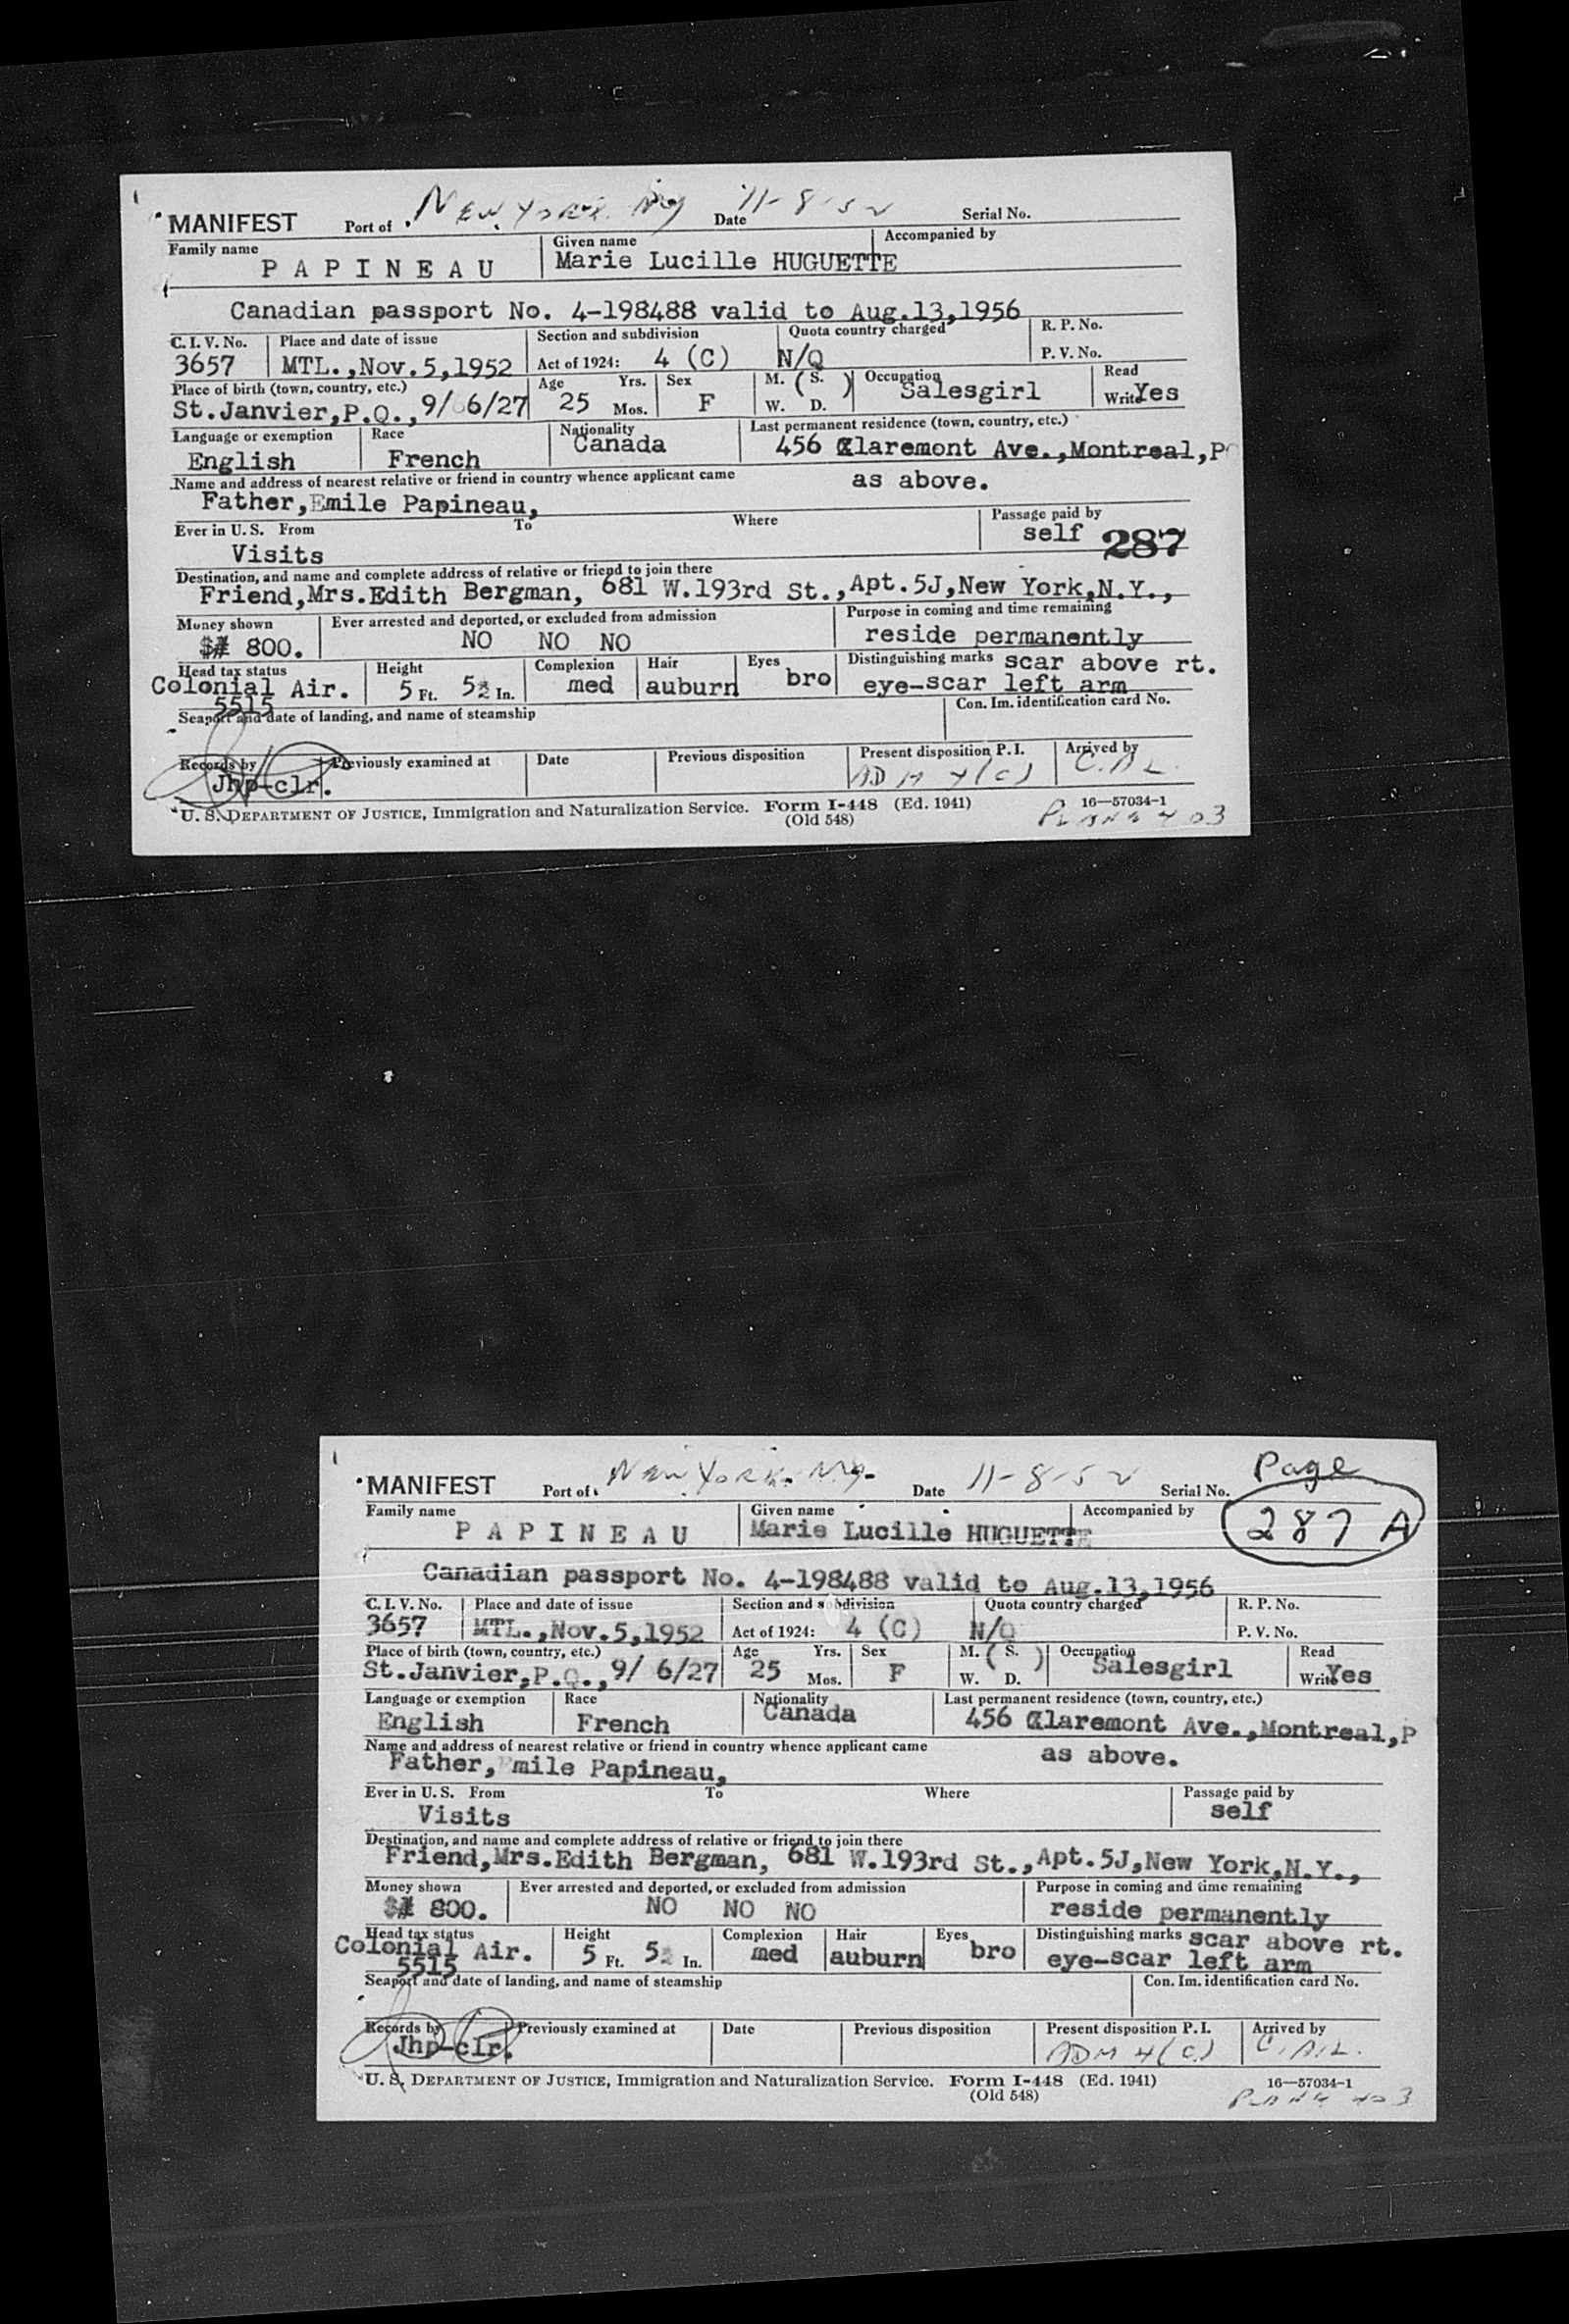 MANIFEST Port of New York NY Date 11-8-52 Serial No.
Family name Given name Accompanied by
PAPINEAU Marie Lucille HUGUETTE
Canadian passport No. 4-198488 valid to Aug.13,1956
C. I. V. No. Place and date of issue Section and subdivision Quota country charged R. P. No.
3657 MTL.,Nov.5,1952 Act of 1924: 4 (C) N/Q P. V. No.
Place of birth (town, country, etc.) Age Yrs. Sex M. ( S. ) Occupation Read
St.Janvier,P.Q.,9/ 6/27 25 Mos. F W. D. Salesgirl Write Yes
Language or exemption Race Nationality Last permanent residence (town, country, etc.)
English French Canada 456 Claremont Ave.,Montreal,PQ
Name and address of nearest relative or friend in country whence applicant came as above.
Father,Emile Papineau,
Ever in U. S. From To Where Passage paid by
Visits self 287
Destination, and name and complete address of relative or friend to join there
Friend,Mrs.Edith Bergman, 681 W.193rd St.,Apt.5J,New York,N.Y.,
Money shown Ever arrested and deported, or excluded from admission Purpose in coming and time remaining
$ 800. NO NO NO reside permanently
Head tax status Height Complexion Hair Eyes Distinguishing marks scar above rt.
Colonial Air. 5 Ft. 5½ In. med auburn bro eye-scar left arm
5515
Seaport and date of landing, and name of steamship Con. Im. identification card No.
Records by Previously examined at Date Previous disposition Present disposition P. I. Arrived by
Jhp-clr. ADM 4(C) C.A.L.
U. S. DEPARTMENT OF JUSTICE, Immigration and Naturalization Service. Form I-448 (Ed. 1941) 16—57034-1
(Old 548) Plane 403
Page
MANIFEST Port of New York NY. Date 11-8-52 Serial No.
Family name Given name Accompanied by 287 A
PAPINEAU Marie Lucille HUGUETTE
Canadian passport No. 4-198488 valid to Aug.13,1956
C. I. V. No. Place and date of issue Section and subdivision Quota country charged R. P. No.
3657 MTL.,Nov.5,1952 Act of 1924: 4 (C) N/Q P. V. No.
Place of birth (town, country, etc.) Age Yrs. Sex M. ( S. ) Occupation Read
St.Janvier,P.Q.,9/ 6/27 25 Mos. F W. D. Salesgirl Write Yes
Language or exemption Race Nationality Last permanent residence (town, country, etc.)
English French Canada 456 Claremont Ave.,Montreal,P
Name and address of nearest relative or friend in country whence applicant came as above.
Father, mile Papineau,
Ever in U. S. From To Where Passage paid by
Visits self
Destination, and name and complete address of relative or friend to join there
Friend,Mrs.Edith Bergman, 681 W.193rd St.,Apt.5J,New York,N.Y.,
Money shown Ever arrested and deported, or excluded from admission Purpose in coming and time remaining
$ 800. NO NO NO reside permanently
Head tax status Height Complexion Hair Eyes Distinguishing marks scar above rt.
Colonial Air. 5 Ft. 5½ In. med auburn bro eye-scar left arm
5515
Seaport and date of landing, and name of steamship Con. Im. identification card No.
Records by Previously examined at Date Previous disposition Present disposition P. I. Arrived by
Jhp-clr. ADM 4(C) C.A.L.
U. S. DEPARTMENT OF JUSTICE, Immigration and Naturalization Service. Form I-448 (Ed. 1941) 16—57034-1
(Old 548) Plane 403